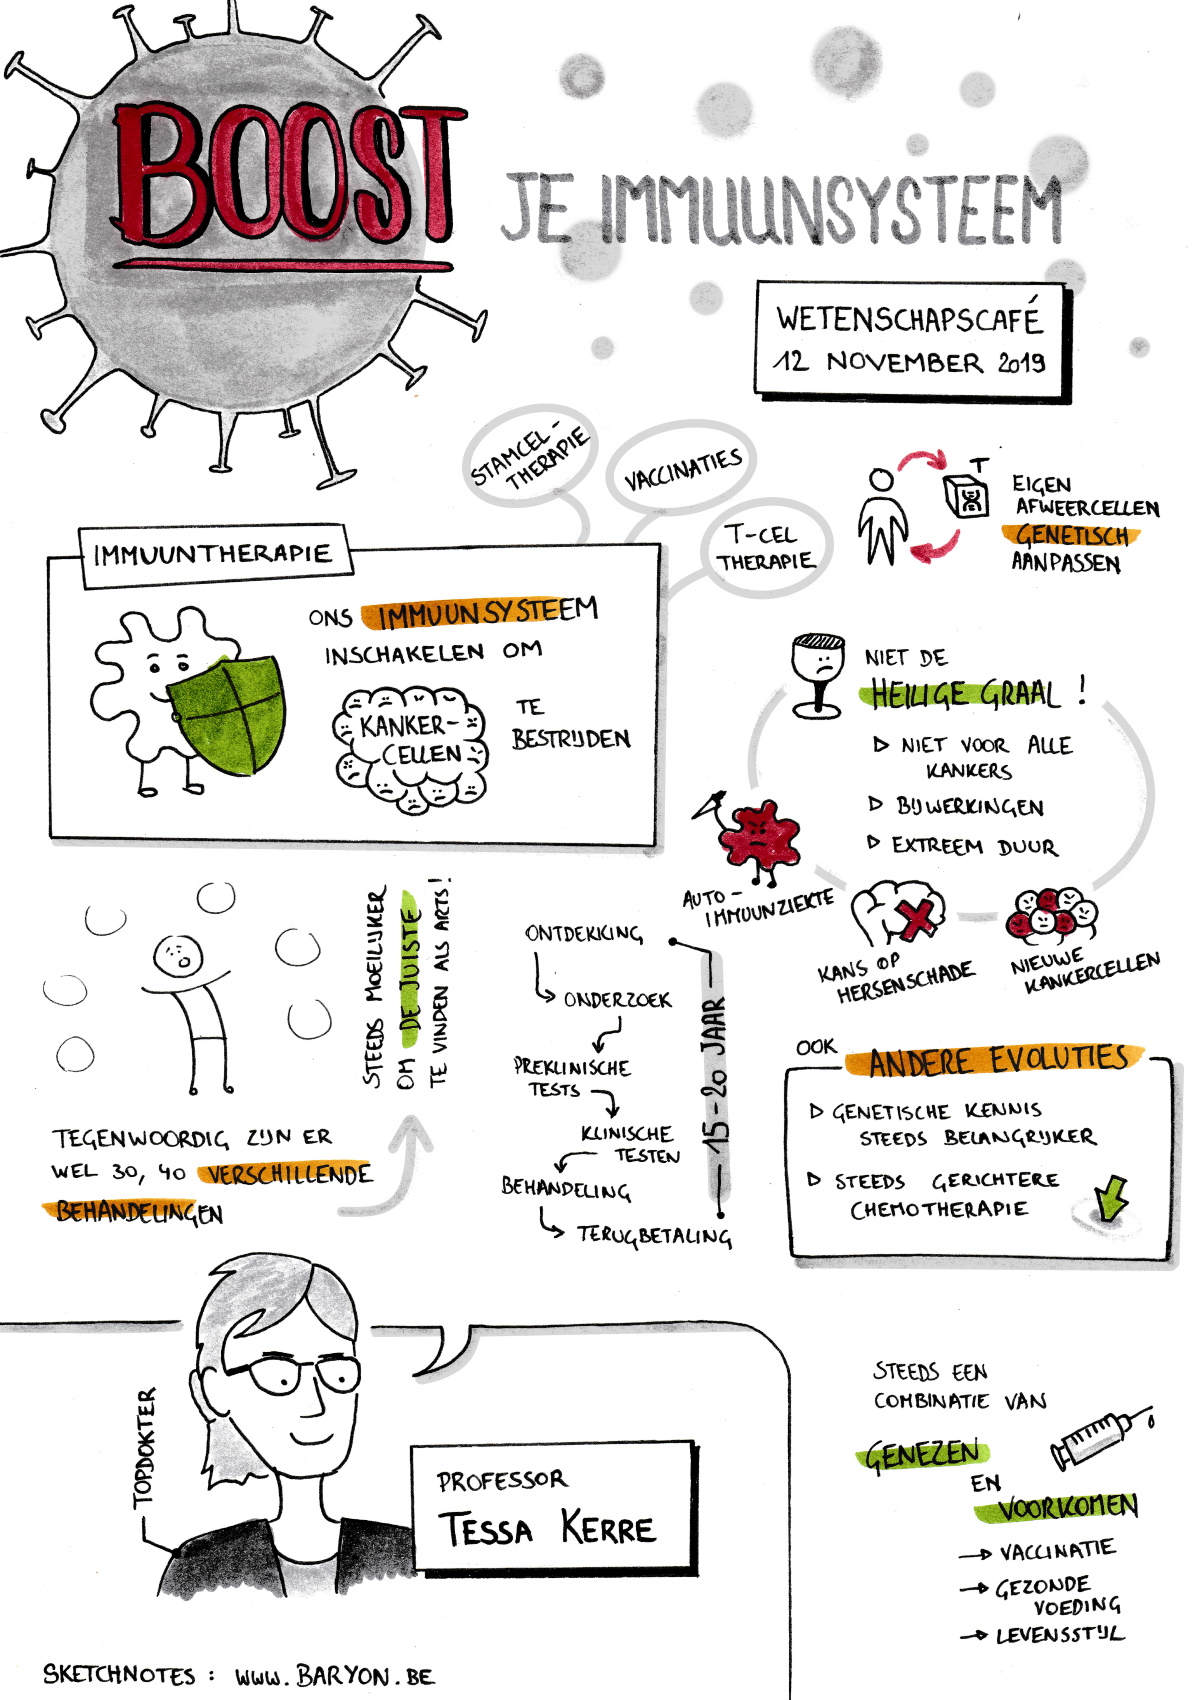 BOOST
JE IMMUUNSYSTEEM
WETENSCHAPSCAFÉ
12 NOVEMBER 2019
STAMCEL-
THERAPIE
VACCINATIES
T-CEL
THERAPIE
T
EIGEN
AFWEERCELLEN
GENETISCH
AANPASSEN
IMMUUNTHERAPIE
ONS IMMUUNSYSTEEM
INSCHAKELEN OM
KANKER-
CELLEN
TE
BESTRIJDEN
NIET DE
HEILIGE GRAAL !
▷ NIET VOOR ALLE
KANKERS
▷ BIJWERKINGEN
▷ EXTREEM DUUR
AUTO-
IMMUUNZIEKTE
KANS OP
HERSENSCHADE
NIEUWE
KANKERCELLEN
STEEDS MOEILIJKER
OM DE JUISTE
TE VINDEN ALS ARTS!
TEGENWOORDIG ZIJN ER
WEL 30, 40 VERSCHILLENDE
BEHANDELINGEN
ONTDEKKING
ONDERZOEK
PREKLINISCHE
TESTS
KLINISCHE
TESTEN
BEHANDELING
TERUGBETALING
15-20 JAAR
OOK ANDERE EVOLUTIES
▷ GENETISCHE KENNIS
STEEDS BELANGRIJKER
▷ STEEDS GERICHTERE
CHEMOTHERAPIE
TOPDOKTER
PROFESSOR
TESSA KERRE
STEEDS EEN
COMBINATIE VAN
GENEZEN
EN
VOORKOMEN
→ VACCINATIE
→ GEZONDE
VOEDING
→ LEVENSSTIJL
SKETCHNOTES : WWW.BARYON.BE